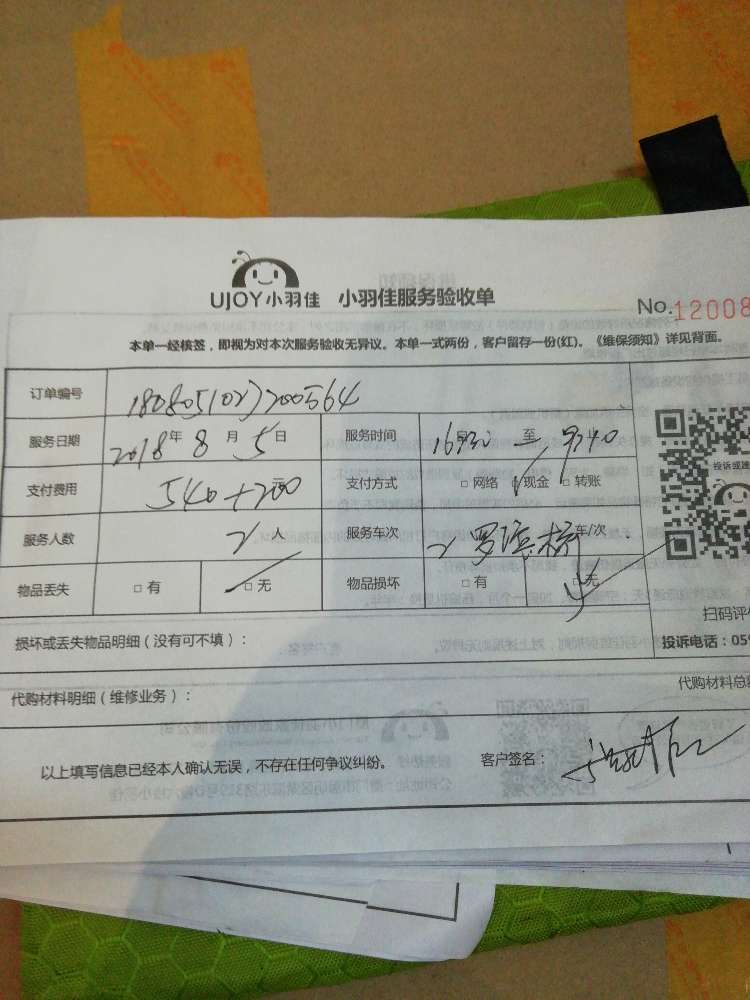 UJOY小羽佳 小羽佳服务验收单
No.12008
本单一经核签，即视为对本次服务验收无异议。本单一式两份，客户留存一份(红)。《维保须知》详见背面。
订单编号 180805(02)200564
服务日期 2018年 8 月 5 日 服务时间 至
支付费用 540+200 支付方式 □网络 现金 □转账
投诉或建
服务人数 2人 服务车次 2 车/次
物品丢失 □有 □无 物品损坏 □有 无
扫码评价
损坏或丢失物品明细（没有可不填）： 投诉电话：059
代购材料明细（维修业务）： 代购材料总
以上填写信息已经本人确认无误，不存在任何争议纠纷。 客户签名：